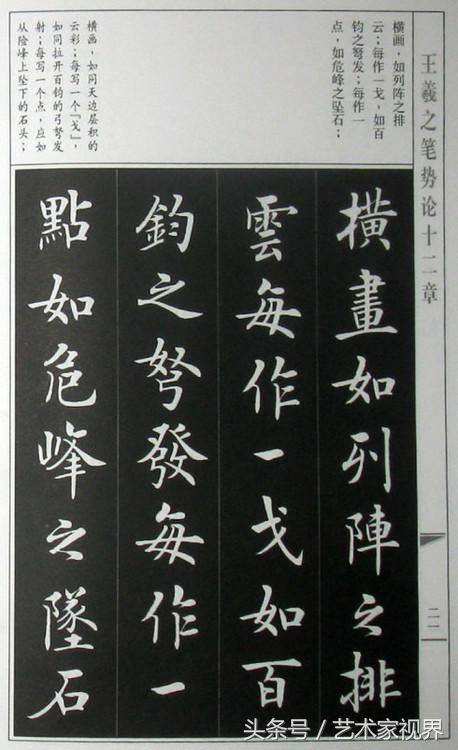 王羲之笔势论十二章
二一
横画，如列阵之排
云；每作一戈，如百
钧之弩发；每作一
点，如危峰之坠石；
横画，如同天边层积的
云彩；每写一个『戈』，
如同拉开百钧的弓弩发
射；每写一个点，应如
从险峰上坠下的石头；
橫畫如列陣之排
雲每作一戈如百
鈞之弩發每作一
點如危峰之墜石
头条号 / 艺术家视界